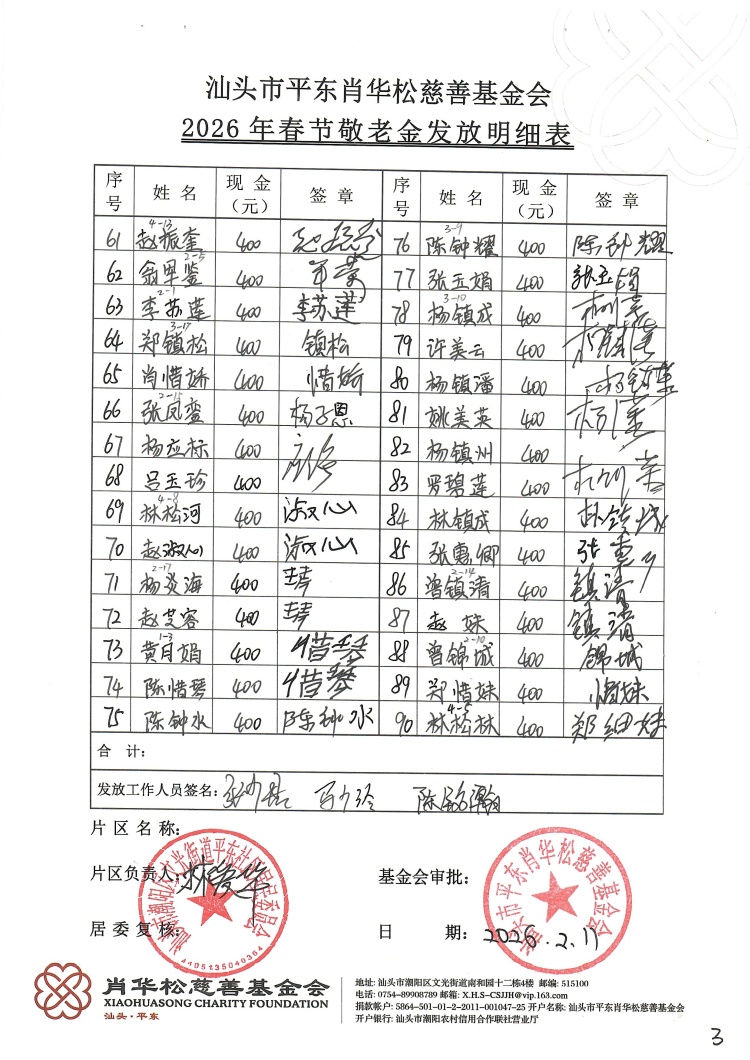 汕头市平东肖华松慈善基金会
2026年春节敬老金发放明细表
序号 姓名 现金（元） 签章 序号 姓名 现金（元） 签章
4-13 3-9
61 赵振奎 400 76 陈钟耀 400 陈钟耀
2-5
62 翁甲鉴 400 77 张玉娟 400 张玉娟
2-1 3-10
63 李苏莲 400 李苏莲 78 杨镇成 400
3-17
64 郑镇松 400 镇松 79 许美云 400
65 肖惜娇 400 惜娇 80 杨镇潘 400
2-15
66 张凤銮 400 杨子恩 81 姚美英 400
67 杨应标 400 82 杨镇州 400
68 吕玉珍 400 83 罗碧莲 400
4-8
69 林松河 400 淑心 84 林镇成 400 林镇成
70 赵淑心 400 淑心 85 张惠卿 400
2-17 2-14
71 杨炎海 400 86 曾镇清 400 镇清
72 赵芝容 400 87 赵妹 400 镇清
1-3 2-10
73 黄月娟 400 惜琴 88 曾锦城 400 锦城
74 陈惜琴 400 惜琴 89 郑惜妹 400 惜妹
4-5
75 陈钟水 400 陈钟水 90 林松林 400 郑细妹
合 计：
发放工作人员签名：
片区名称：
片区负责人：
基金会审批：
居委复核：
日 期：2026.2.11
4405135040364
汕头市平东肖华松慈善基金会
肖华松慈善基金会
XIAOHUASONG CHARITY FOUNDATION
汕头·平东
地址: 汕头市潮阳区文光街道南和园十二栋4楼 邮编: 515100
电话: 0754-89908789 邮箱: X.H.S-CSJJH@vip.163.com
捐款帐户: 5864-501-01-2-2011-001047-25 开户名称: 汕头市平东肖华松慈善基金会
开户银行: 汕头市潮阳农村信用合作联社营业厅
3